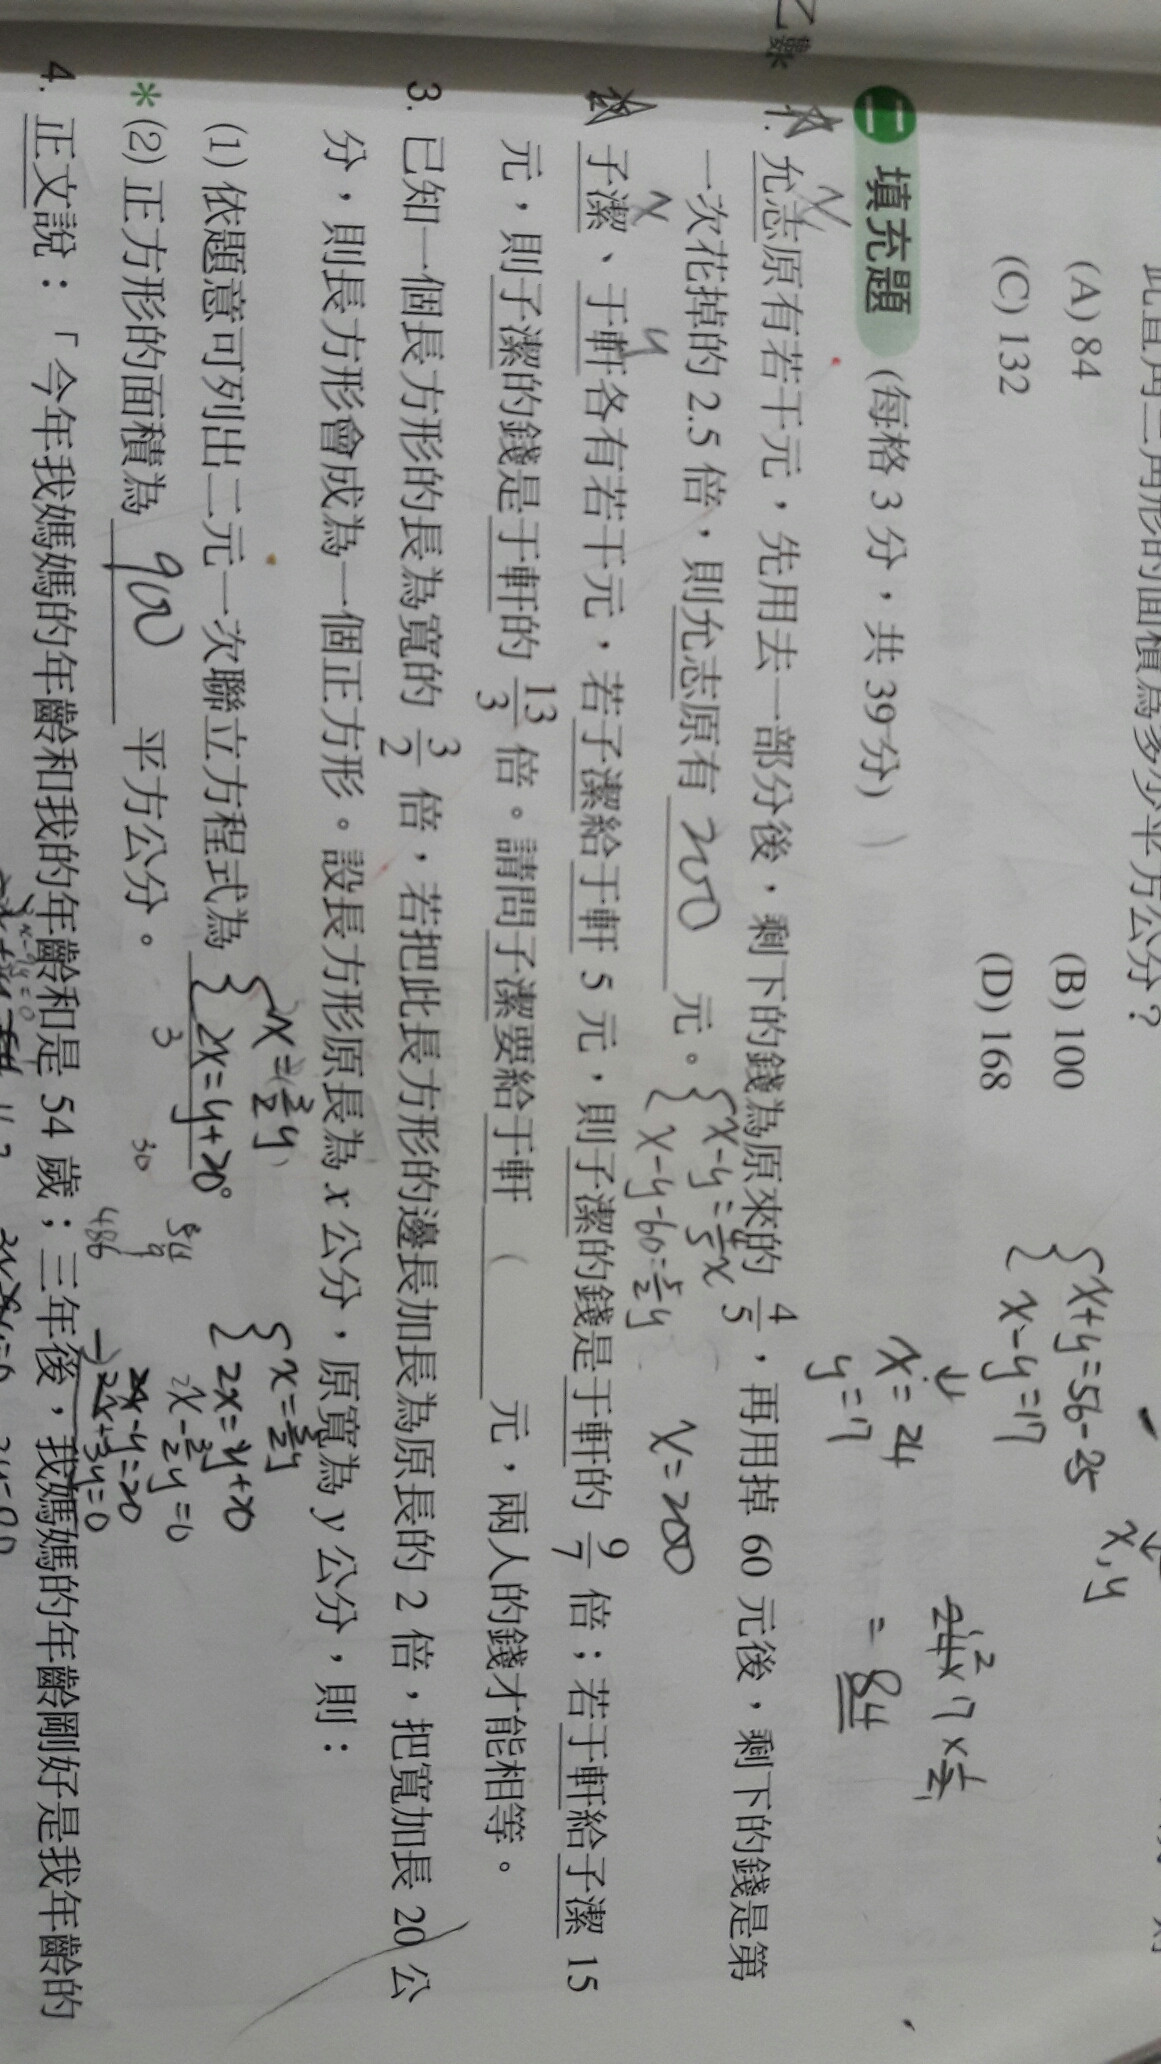 此直角三角形的面積為多少平方公分？
(A) 84 (B) 100
(C) 132 (D) 168
x+y=56-25
x-y=17
x,y
x=24
y=17
24×7×1/2
=84
二 填充題 (每格 3 分，共 39 分)
乙數
1. 允志原有若干元，先用去一部分後，剩下的錢為原來的 4/5，再用掉 60 元後，剩下的錢是第
一次花掉的 2.5 倍，則允志原有 200 元。
x-y=4/5x
x-y-60=5/2y
x=200
子潔、于軒各有若干元，若子潔給于軒 5 元，則子潔的錢是于軒的 9/7 倍；若于軒給子潔 15
x
y
元，則子潔的錢是于軒的 13/3 倍。請問子潔要給于軒 元，兩人的錢才能相等。
3. 已知一個長方形的長為寬的 3/2 倍，若把此長方形的邊長加長為原長的 2 倍，把寬加長 20 公
分，則長方形會成為一個正方形。設長方形原長為 x 公分，原寬為 y 公分，則：
(1) 依題意可列出二元一次聯立方程式為 x=3/2y
2x=y+20。
x=3/2y
2x=y+20
2x-y=20
*(2) 正方形的面積為 900 平方公分。
30
486
4. 正文說：「今年我媽媽的年齡和我的年齡和是 54 歲；三年後，我媽媽的年齡剛好是我年齡的